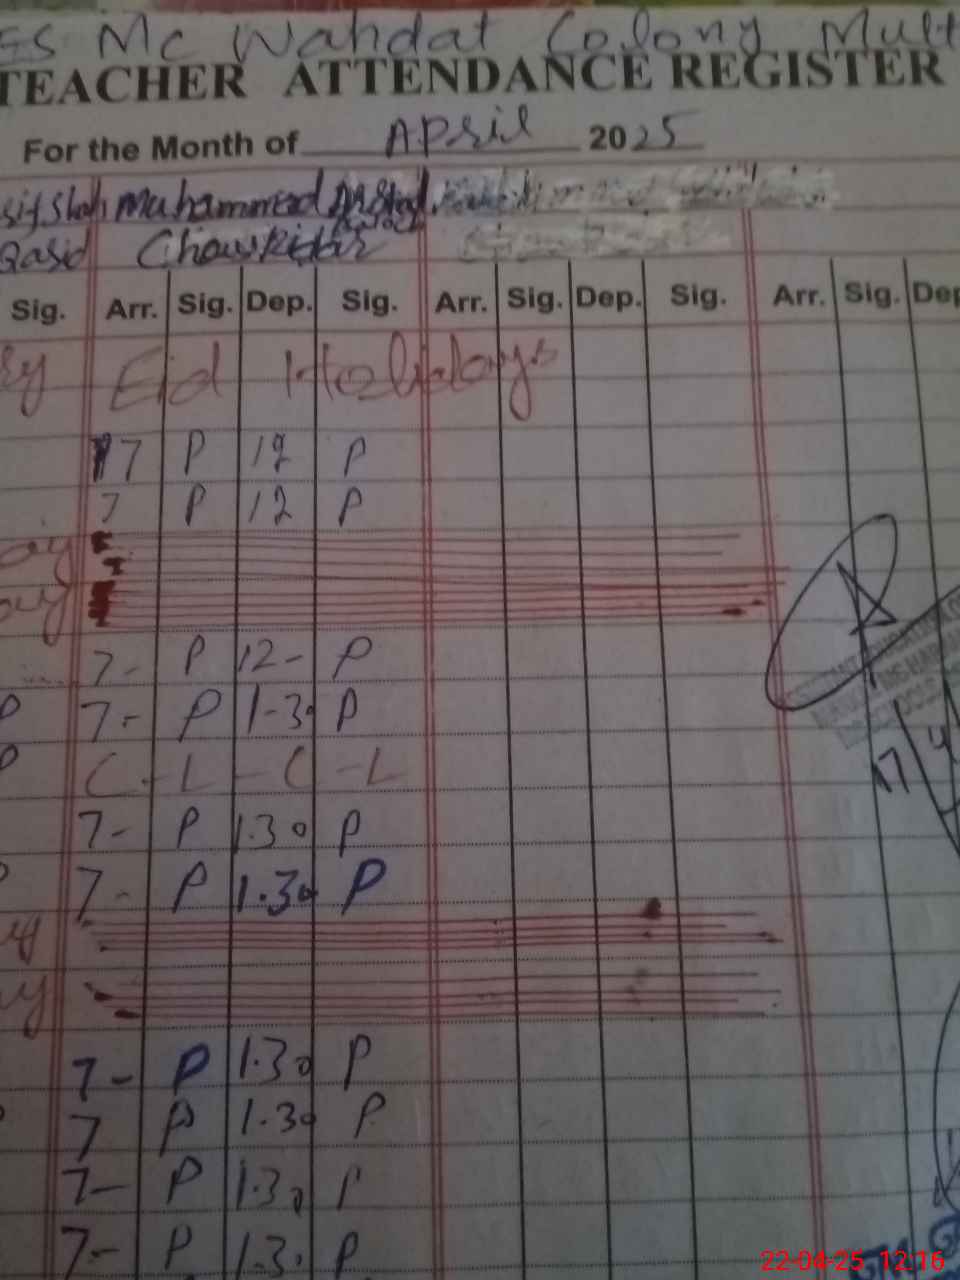 ES Mc Wahdat Colony Mult
TEACHER ATTENDANCE REGISTER
For the Month of April 2025
sif Shah Muhammad
Qasid Chowkidar
Sig. Arr. Sig. Dep. Sig. Arr. Sig. Dep. Sig. Arr. Sig. Dep
Eid Holidays
7 P 12 P
7 P 12 P
ay
ay
7- P 12- P
P 7- P 1-30 P
P C-L-C-L
7- P 1.30 P
7- P 1.30 P
y
ay
17 4
7- P 1.30 P
7 P 1.30 P
7- P 1.30 P
7- P 1.30 P
22-04-25 12:16